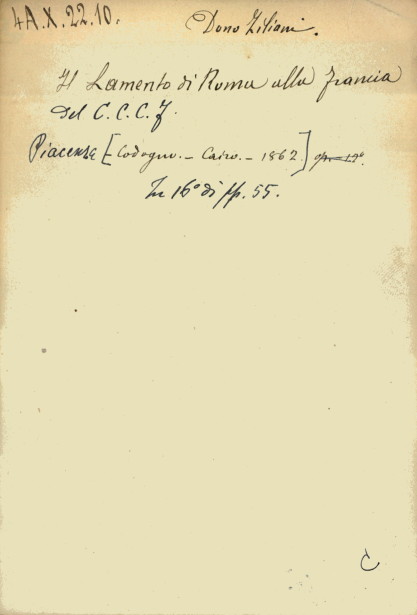 4A.X.22.10.
Dono Ziliani.
Il Lamento di Roma alla Francia
Del C. C. C. F.
Piacenza [Codogno. - Cairo. - 1862.]
In 16° di pp. 55.
C